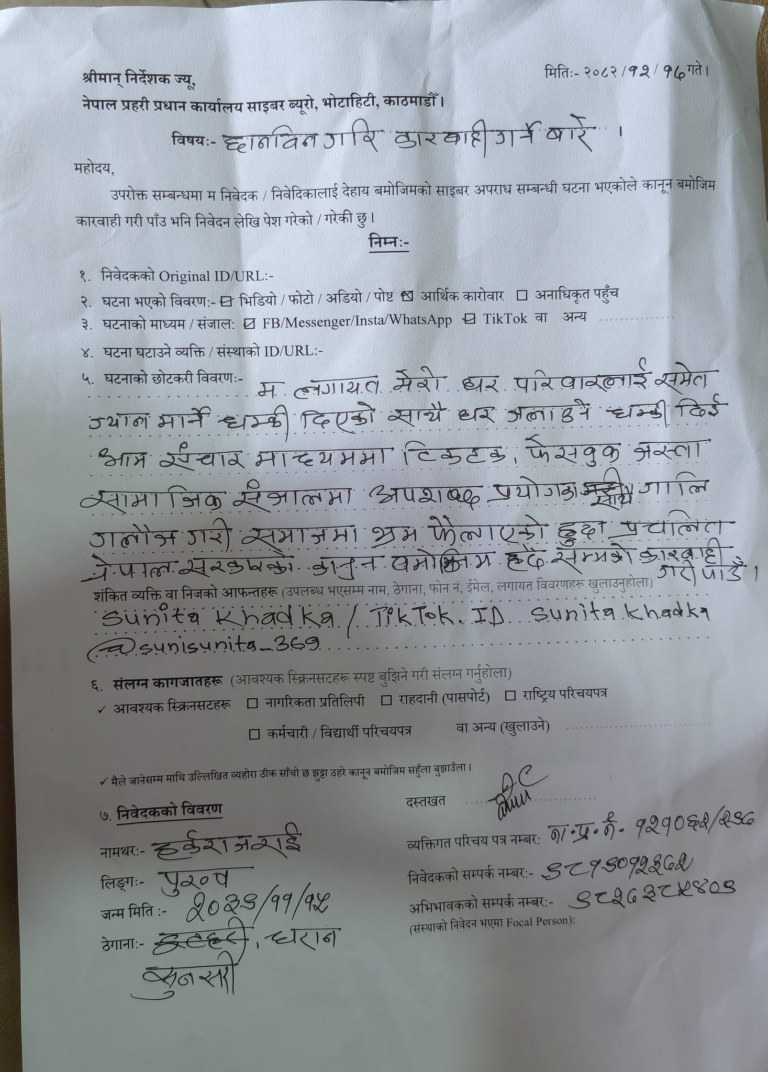 श्रीमान् निर्देशक ज्यू,
मितिः- २०८२/१२/१६ गते।
नेपाल प्रहरी प्रधान कार्यालय साइबर ब्यूरो, भोटाहिटी, काठमाडौँ।
विषयः- छानविन गरि कारवाही गर्ने बारे ।
महोदय,
उपरोक्त सम्बन्धमा म निवेदक / निवेदिकालाई देहाय बमोजिमको साइबर अपराध सम्बन्धी घटना भएकोले कानून बमोजिम
कारवाही गरी पाँउ भनि निवेदन लेखि पेश गरेको / गरेकी छु।
निम्नः-
१. निवेदकको Original ID/URL:-
२. घटना भएको विवरणः- ☑ भिडियो / फोटो / अडियो / पोष्ट ☑ आर्थिक कारोवार ☐ अनाधिकृत पहुँच
३. घटनाको माध्यम / संजाल: ☑ FB/Messenger/Insta/WhatsApp ☑ TikTok वा अन्य
४. घटना घटाउने व्यक्ति / संस्थाको ID/URL:-
५. घटनाको छोटकरी विवरणः- म लगायत मेरो घर परिवारलाई समेत
ज्यान मार्ने धम्की दिएको साथै घर जलाउने धम्की दिई
आम संचार माध्यममा टिकटक, फेसवुक जस्ता
सामाजिक संजालमा अपशब्द प्रयोगका साथै गालि
गलौज गरी समाजमा भ्रम फैलाएको हुदा प्रचलित
नेपाल सरकारको कानुन वमोजिम हदै सम्मको कारवाही
गरी पाउँ ।
शंकित व्यक्ति वा निजको आफन्तहरू (उपलब्ध भएसम्म नाम, ठेगाना, फोन नं, ईमेल, लगायत विवरणहरू खुलाउनुहोला)
Sunita Khadka / TikTok. ID Sunita Khadka
@sunisunita_369
६. संलग्न कागजातहरू (आवश्यक स्क्रिनसटहरू स्पष्ट बुझिने गरी संलग्न गर्नुहोला)
✓ आवश्यक स्क्रिनसटहरू ☐ नागरिकता प्रतिलिपी ☐ राहदानी (पासपोर्ट) ☐ राष्ट्रिय परिचयपत्र
☐ कर्मचारी / विद्यार्थी परिचयपत्र वा अन्य (खुलाउने)
✓ मैले जानेसम्म माथि उल्लिखित व्यहोरा ठीक साँचो छ झुठ्ठा ठहरे कानून बमोजिम सहुँला बुझाउँला।
दस्तखत
७. निवेदकको विवरण
नामथरः- हर्कराज राई
व्यक्तिगत परिचय पत्र नम्बर: ना.प्र.नं.
लिङ्गः- पुरुष
निवेदकको सम्पर्क नम्बरः- ९८१९०१२३६२
जन्म मिति :- २०३९/११/१५
अभिभावकको सम्पर्क नम्बरः- ९८२६३८५४०९
(संस्थाको निवेदन भएमा Focal Person):
ठेगानाः- धरान
सुनसरी